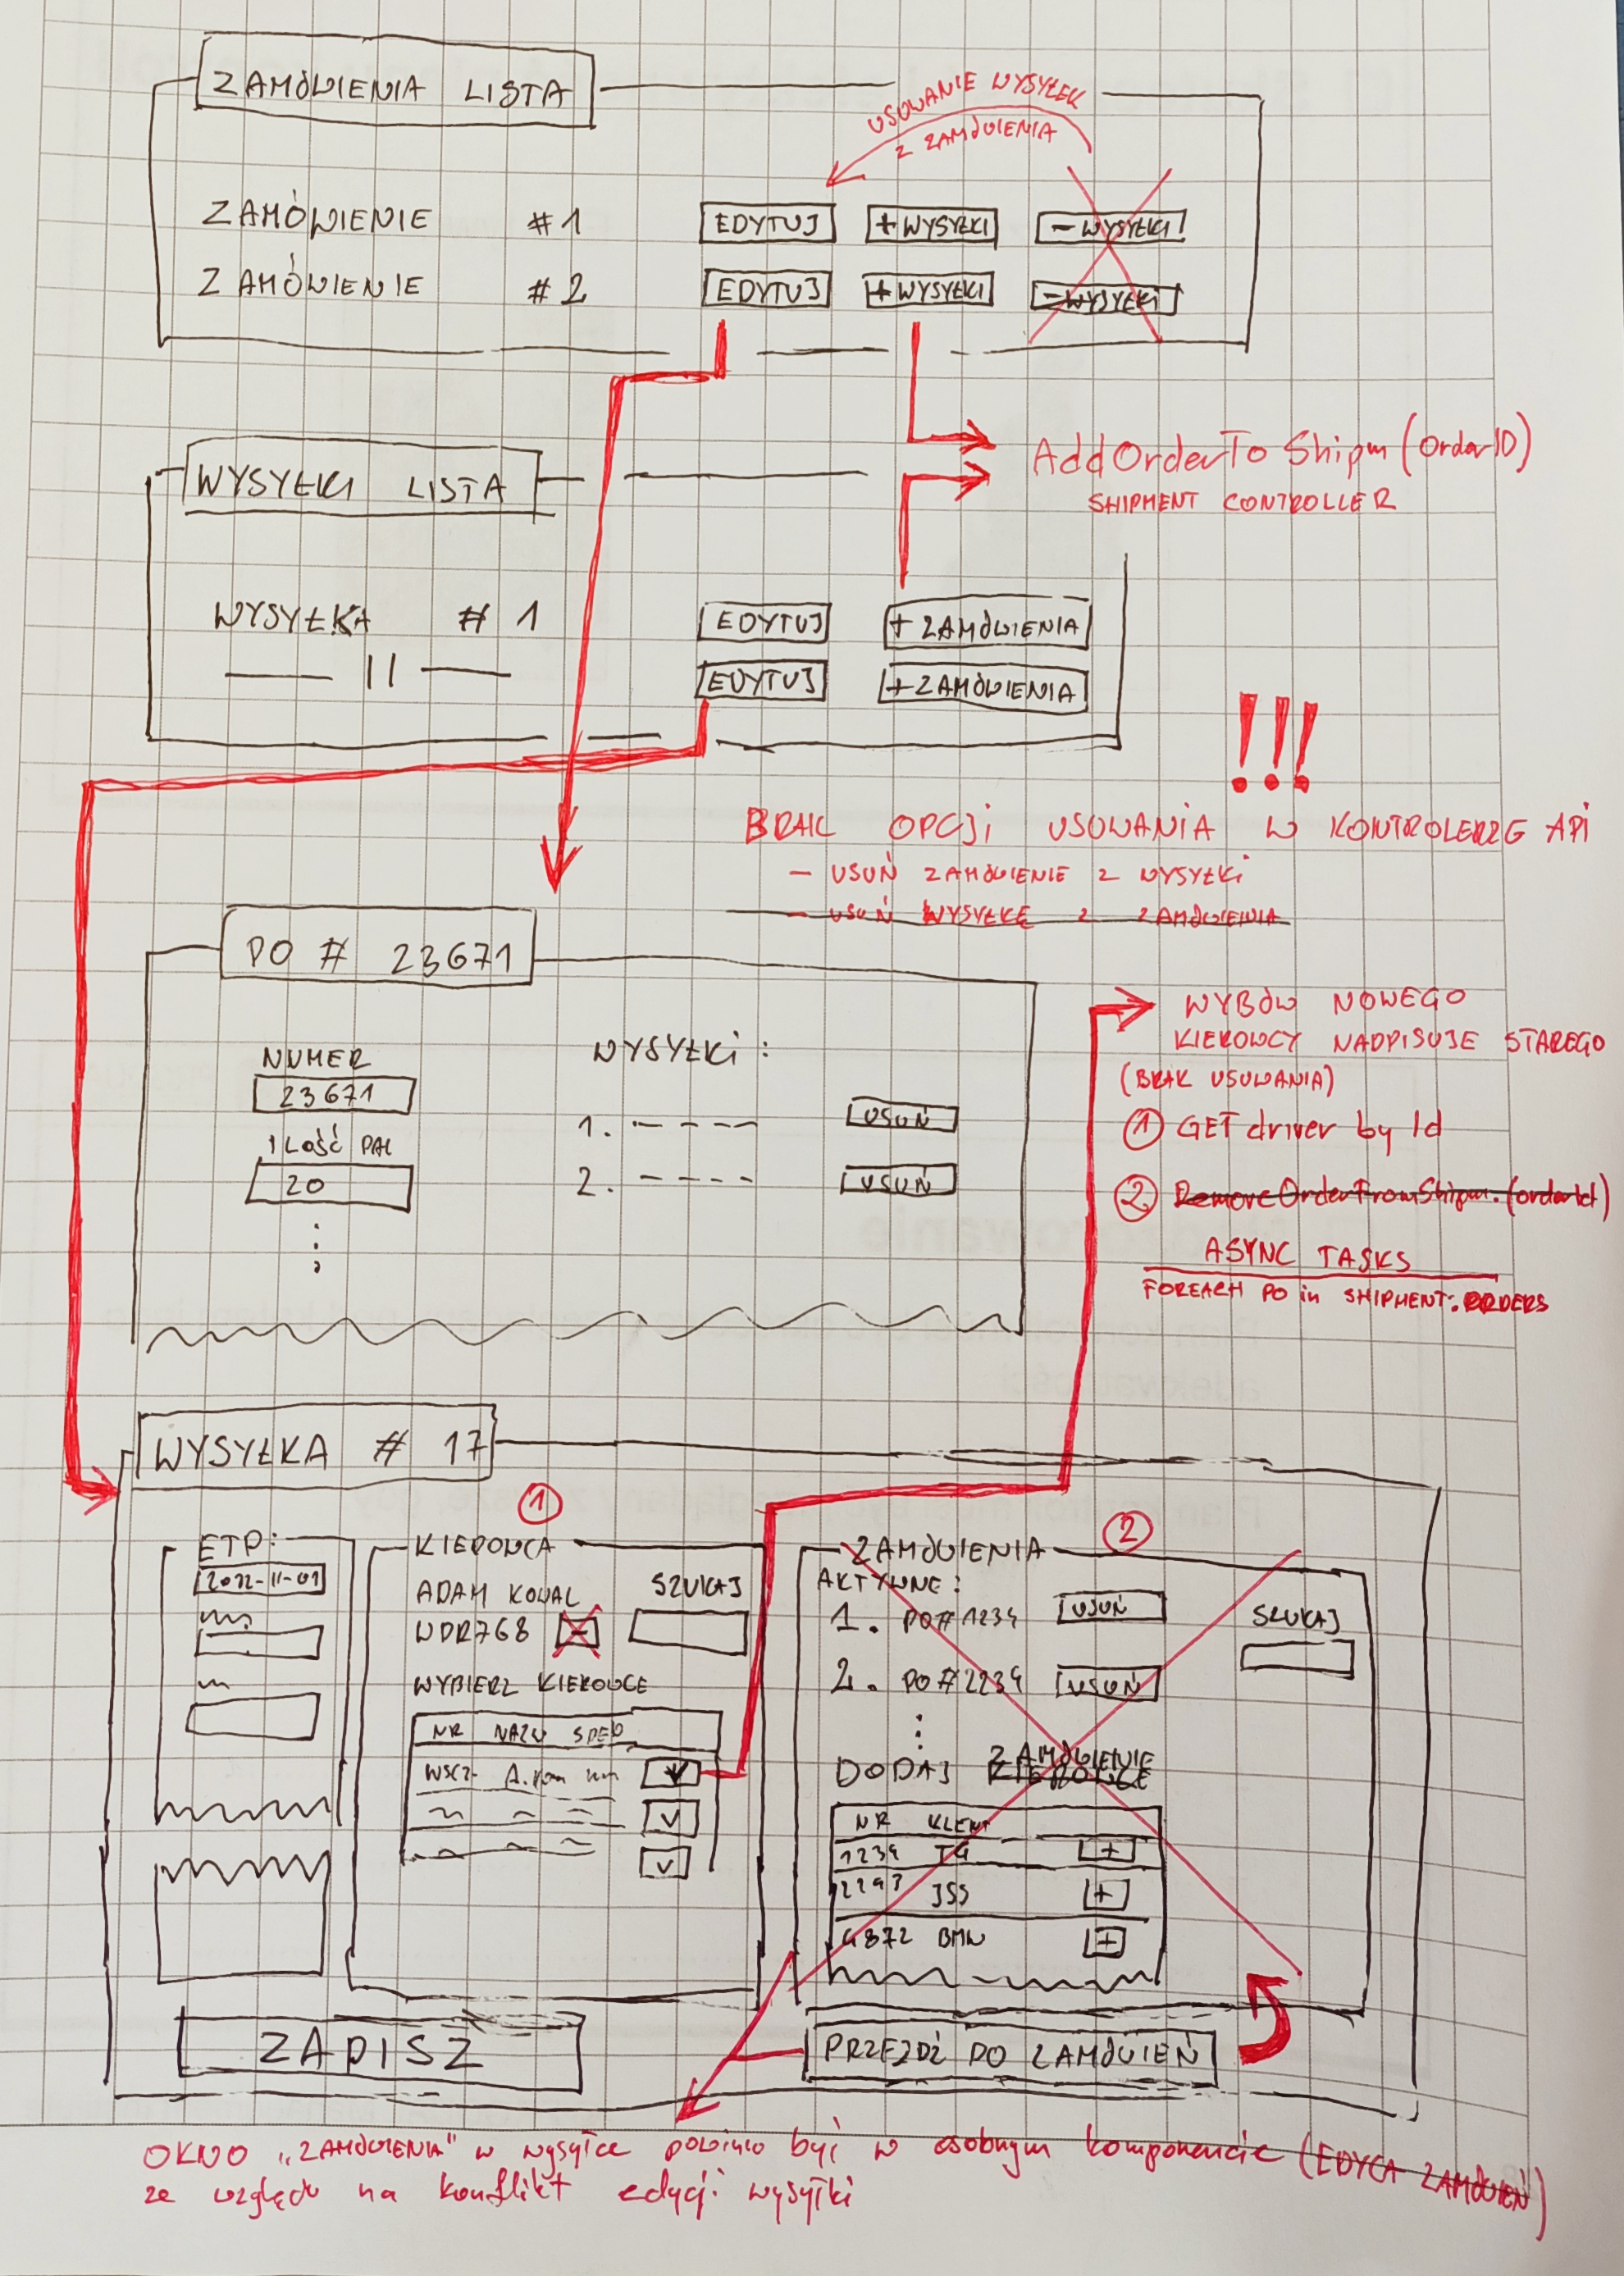 ZAMÓWIENIA LISTA
USUWANIE WYSYŁEK
Z ZAMÓWIENIA
ZAMÓWIENIE #1 EDYTUJ +WYSYŁKI -WYSYŁKI
ZAMÓWIENIE #2 EDYTUJ +WYSYŁKI -WYSYŁKI
AddOrderTo Shipm (OrderID)
SHIPMENT CONTROLLER
WYSYŁKI LISTA
WYSYŁKA # 1 EDYTUJ + ZAMÓWIENIA
— || — EDYTUJ + ZAMÓWIENIA
!!!
BRAK OPCJi USUWANIA W KONTROLERZE API
- USUŃ ZAMÓWIENIE Z WYSYŁKi
- USUŃ WYSYŁKĘ Z ZAMÓWIENIA
PO # 23671
NUMER
23671
ILOŚĆ PAL
20
WYSYŁKi :
1. - - - - USUŃ
2. - - - - USUŃ
WYBÓW NOWEGO
KIEROWCY NADPISUJE STAREGO
(BRAK USUWANIA)
① GET driver by Id
② RemoveOrderFromShipm. (orderId)
ASYNC TASKS
FOREACH PO in SHIPMENT.ORDERS
WYSYŁKA # 17
ETD:
2022-11-01
①
KIEROWCA
ADAM KOWAL
WDR768 -
SZUKAJ
WYBIERZ KIEROWCE
NR NAZW SPED
②
ZAMÓWIENIA
AKTYWNE :
1. PO#1234 USUŃ
2. PO#2234 USUŃ
SZUKAJ
DODAJ ZAMÓWIENIE
KIEROWCE
NR KLIENT
1234 +
2293 JSS +
4872 BMW +
ZAPISZ
PRZEJDŹ DO ZAMÓWIEŃ
OKNO „ZAMÓWIENIA" w wysyłce powinno być w osobnym komponencie (EDYCJA ZAMÓWIEŃ)
ze względu na konflikt edycji wysyłki